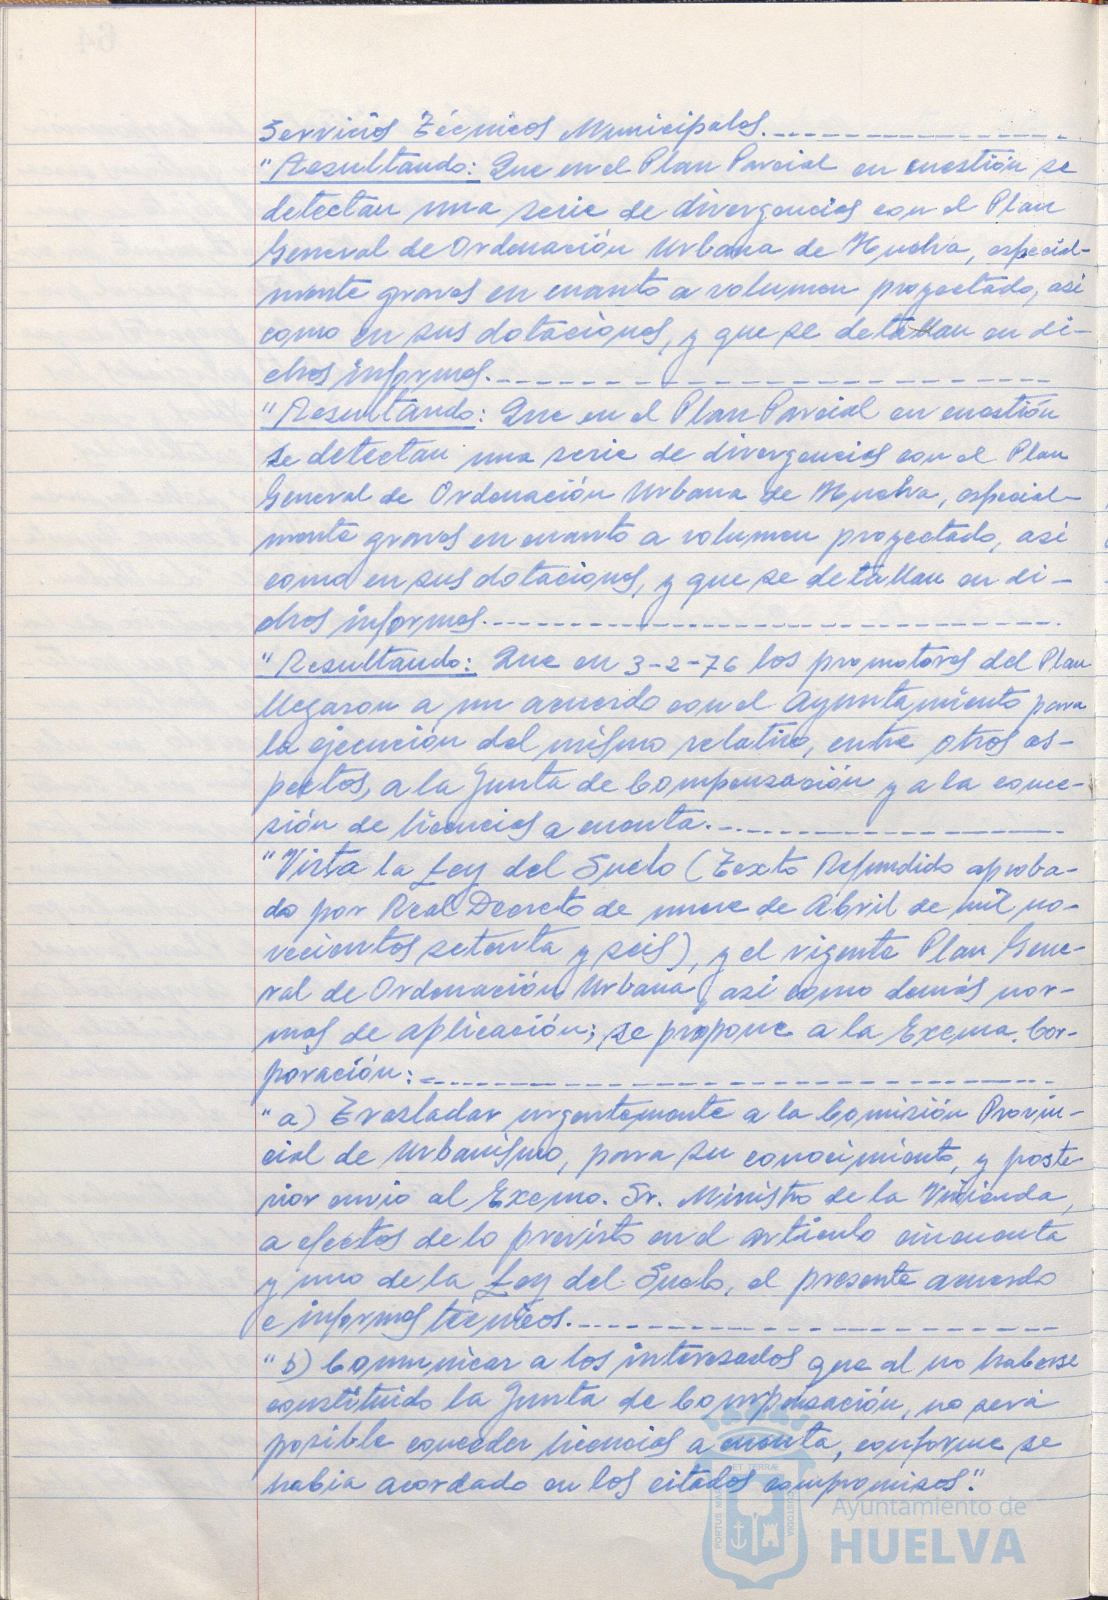 Servicios Técnicos Municipales.
"Resultando: Que en el Plan Parcial en cuestión se
detectan una serie de divergencias con el Plan
General de Ordenación Urbana de Huelva, especial-
mente graves en cuanto a volumen proyectado, así
como en sus dotaciones, y que se detallan en di-
chos informes.
"Resultando: Que en el Plan Parcial en cuestión
se detectan una serie de divergencias con el Plan
General de Ordenación Urbana de Huelva, especial-
mente graves en cuanto a volumen proyectado, así
como en sus dotaciones, y que se detallan en di-
chos informes.
"Resultando: Que en 3-2-76 los promotores del Plan
llegaron a un acuerdo con el Ayuntamiento para
la ejecución del mismo relativo, entre otros as-
pectos, a la Junta de Compensación y a la conce-
sión de licencias a cuenta.
"Vista la Ley del Suelo (Texto Refundido aproba-
do por Real Decreto de nueve de Abril de mil no-
vecientos setenta y seis), y el vigente Plan Gene-
ral de Ordenación Urbana, así como demás nor-
mas de aplicación; se propone a la Excma. Cor-
poración:
"a) Trasladar urgentemente a la Comisión Provin-
cial de Urbanismo, para su conocimiento, y poste-
rior envío al Excmo. Sr. Ministro de la Vivienda,
a efectos de lo previsto en el artículo cincuenta
y uno de la Ley del Suelo, el presente acuerdo
e informes técnicos.
"b) Comunicar a los interesados que al no haberse
constituido la Junta de Compensación, no será
posible conceder licencias a cuenta, conforme se
había acordado en los citados compromisos."
PORTUS MARIS ET TERRAE CUSTODIA
Ayuntamiento de
HUELVA
64